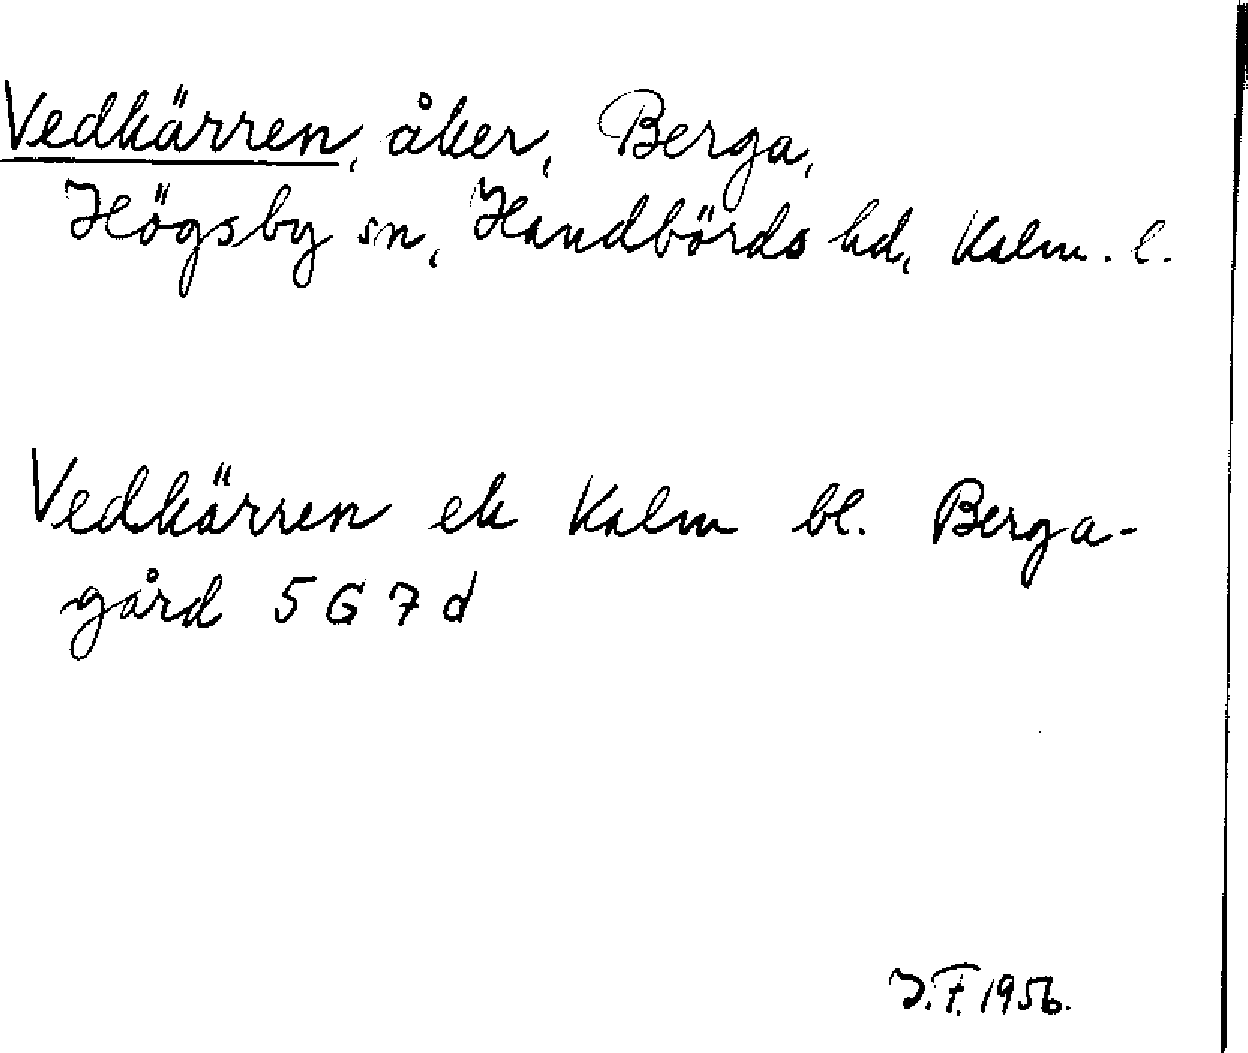 Vedkärren, åker, Berga,
Högsby sn, Handbörds hd, Kalm. l.
Vedkärren ek Kalm bl. Berga-
gård 5 G 7 d
J.F. 1956.